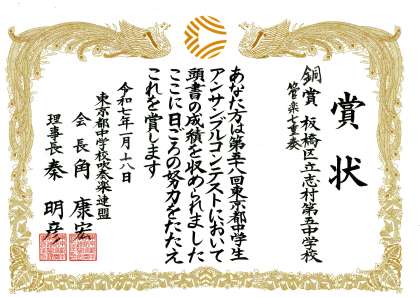 賞状
銅賞 板橋区立志村第五中学校
管楽七重奏
あなた方は第五八回東京都中学生
アンサンブルコンテストにおいて
頭書の成績を収められました
ここに日ごろの努力をたたえ
これを賞します
令和七年一月十八日
東京都中学校吹奏楽連盟
会長 角 康宏
理事長 秦 明彦